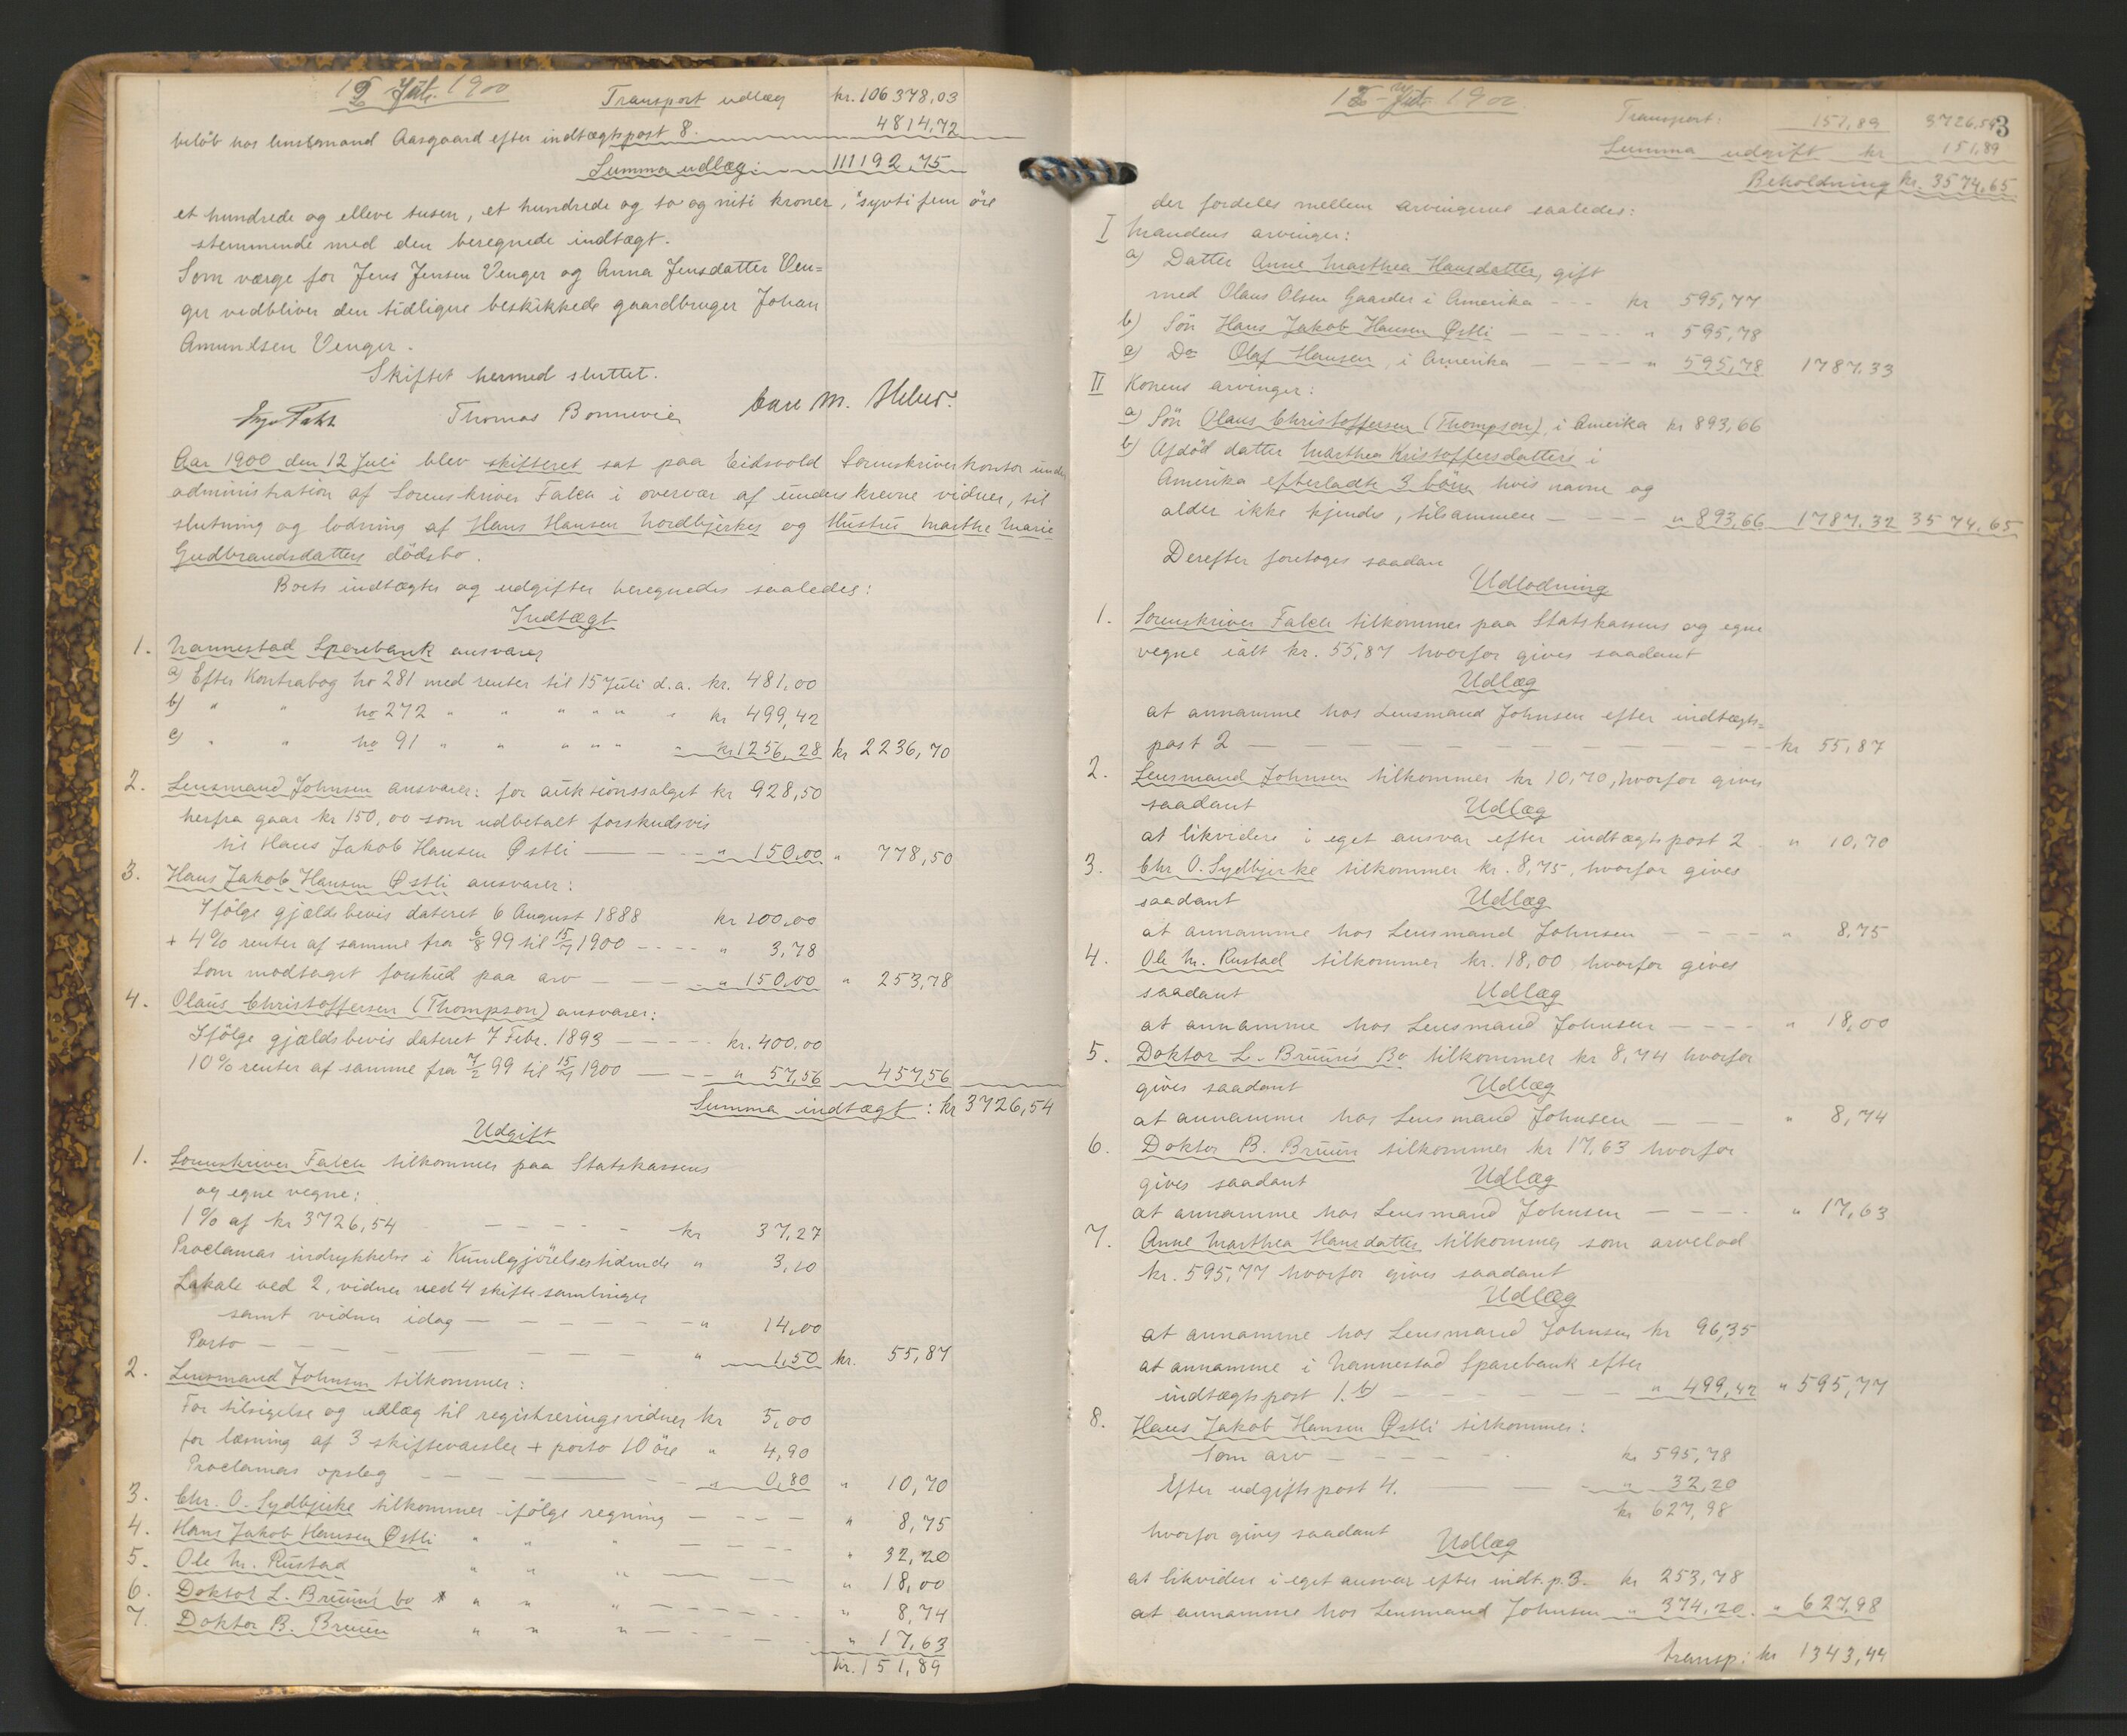 12 Juli 1900
Transport udlæg kr. 106378,03
beløb hos lensmand Aasgaard efter indtægtspost 8. 4814,72
Summa udlæg: 111192,75
et hundrede og elleve tusen, et hundrede og to og niti kroner, syvti fem øre
stemmende med den beregnede indtægt.
Som værge for Jens Jensen Venger og Anna Jensdatter Ven=
ger vedbliver den tidligere beskikkede gaardbruger Johan
Amundsen Venger.
Skiftet hermed sluttet.
Thomas Bonnevie
Aar 1900 den 12 Juli blev skifteret sat paa Eidsvold Sorenskriverkontor under
administration af Sorenskriver Falch i overvær af underskrevne vidner, til
slutning og lodning af Hans Hansen Nordbjerkes og Hustru Marthe Marie
Gudbrandsdatters dødsbo.
Boets indtægter og udgifter beregnedes saaledes:
Indtægt
1. Nannestad Sparebank ansvarer
a) Efter Kontrabog No 281 med renter til 15 Juli d.a. kr. 481,00
b) " " No 272 " " " " " " kr 499,42
c) " " No 91 " " " " " " kr 1256,28 kr 2236,70
2. Lensmand Johnsen ansvarer: for auktionssalget kr 928,50
herfra gaar kr 150,00 som udbetalt forskudsvis
til Hans Jakob Hansen Østli — " 150,00 " 778,50
3. Hans Jakob Hansen Østli ansvarer:
Ifølge gjældsbevis dateret 6 August 1888 kr 100,00
+ 4% renter af samme fra 6/8 99 til 15/7 1900 — " 3,78
Som modtaget forskud paa arv — " 150,00 " 253,78
4. Olaus Christoffersen (Thompson) ansvarer:
Ifølge gjældsbevis dateret 7 Febr. 1893 — kr. 400,00
10% renter af samme fra 7/2 99 til 15/7 1900 — " 57,56 457,56
Summa indtægt: kr 3726,54
Udgift
1. Sorenskriver Falch tilkommer paa Statskassens
og egne vegne:
1% af kr 3726,54 — kr 37,27
Proclamas indrykkelse i Kundgjörelsestidende " 3,10
Lokale ved 2, vidner ved 4 skiftesamlinger
samt vidner idag — " 14,00
Porto — " 1,50 kr. 55,87
2. Lensmand Johnsen tilkommer:
For tilsigelse og udlæg til registreringsvidner kr 5,00
for læsning af 3 skiftevarsler + porto 10 øre " 4,90
Proclamas opslag — " 0,80 " 10,70
3. Chr. O. Sydbjerke tilkommer ifølge regning — " 8,75
4. Hans Jakob Hansen Østli " " " — " 32,20
5. Ole M. Rustad " " " — " 18,00
6. Doktor L. Bruuns bo " " " — " 8,74
7. Doktor B. Bruun " " " — " 17,63
kr. 151,89
12 Juli 1900.
3
Transport: 151,89 3726,54
Summa udgift kr 151,89
Beholdning kr. 3574,65
der fordeles mellem arvingerne saaledes:
I Mandens arvinger:
a) Datter Anne Marthea Hansdatter, gift
med Olaus Olsen Gaarder i Amerika — kr 595,77
b) Søn Hans Jakob Hansen Østli — " 595,78
c) Do Olaf Hansen, i Amerika — " 595,78 1787,33
II Konens arvinger:
a) Søn Olaus Christoffersen (Thompson), i Amerika kr 893,66
b) Afdöd datter Marthea Kristoffersdatters i
Amerika efterladte 3 börn hvis navne og
alder ikke kjendes, tilsammen — " 893,66 1787,32 3574,65
Derefter foretoges saadan
Udlodning
1. Sorenskriver Falch tilkommer paa Statskassens og egne
vegne ialt kr. 55,87 hvorfor gives saadant
Udlæg
at annamme hos Lensmand Johnsen efter indtægts=
post 2 — kr 55,87
2. Lensmand Johnsen tilkommer kr 10,70, hvorfor gives
saadant Udlæg
at likvidere i eget ansvar efter indtægtspost 2 " 10,70
3. Chr O. Sydbjerke tilkommer kr. 8,75, hvorfor gives
saadant Udlæg
at annamme hos Lensmand Johnsen — " 8,75
4. Ole M. Rustad tilkommer kr. 18,00 hvorfor gives
saadant Udlæg
at annamme hos Lensmand Johnsen — " 18,00
5. Doktor L. Bruun's Bo tilkommer kr 8,74 hvorfor
gives saadant Udlæg
at annamme hos Lensmand Johnsen — " 8,74
6. Doktor B. Bruun tilkommer kr 17,63 hvorfor
gives saadant Udlæg
at annamme hos Lensmand Johnsen — " 17,63
7. Anne Marthea Hansdatter tilkommer som arvelod
kr. 595,77 hvorfor gives saadant
Udlæg
at annamme hos Lensmand Johnsen kr 96,35
at annamme i Nannestad Sparebank efter
indtægtspost 1.b) — " 499,42 " 595,77
8. Hans Jakob Hansen Østli tilkommer:
Som arv — kr 595,78
Efter udgiftspost 4. — " 32,20
kr 627,98
hvorfor gives saadant Udlæg
at likvidere i eget ansvar efter indt. p. 3. kr 253,78
at annamme hos Lensmand Johnsen " 374,20 " 627,98
transp: kr 1343,44